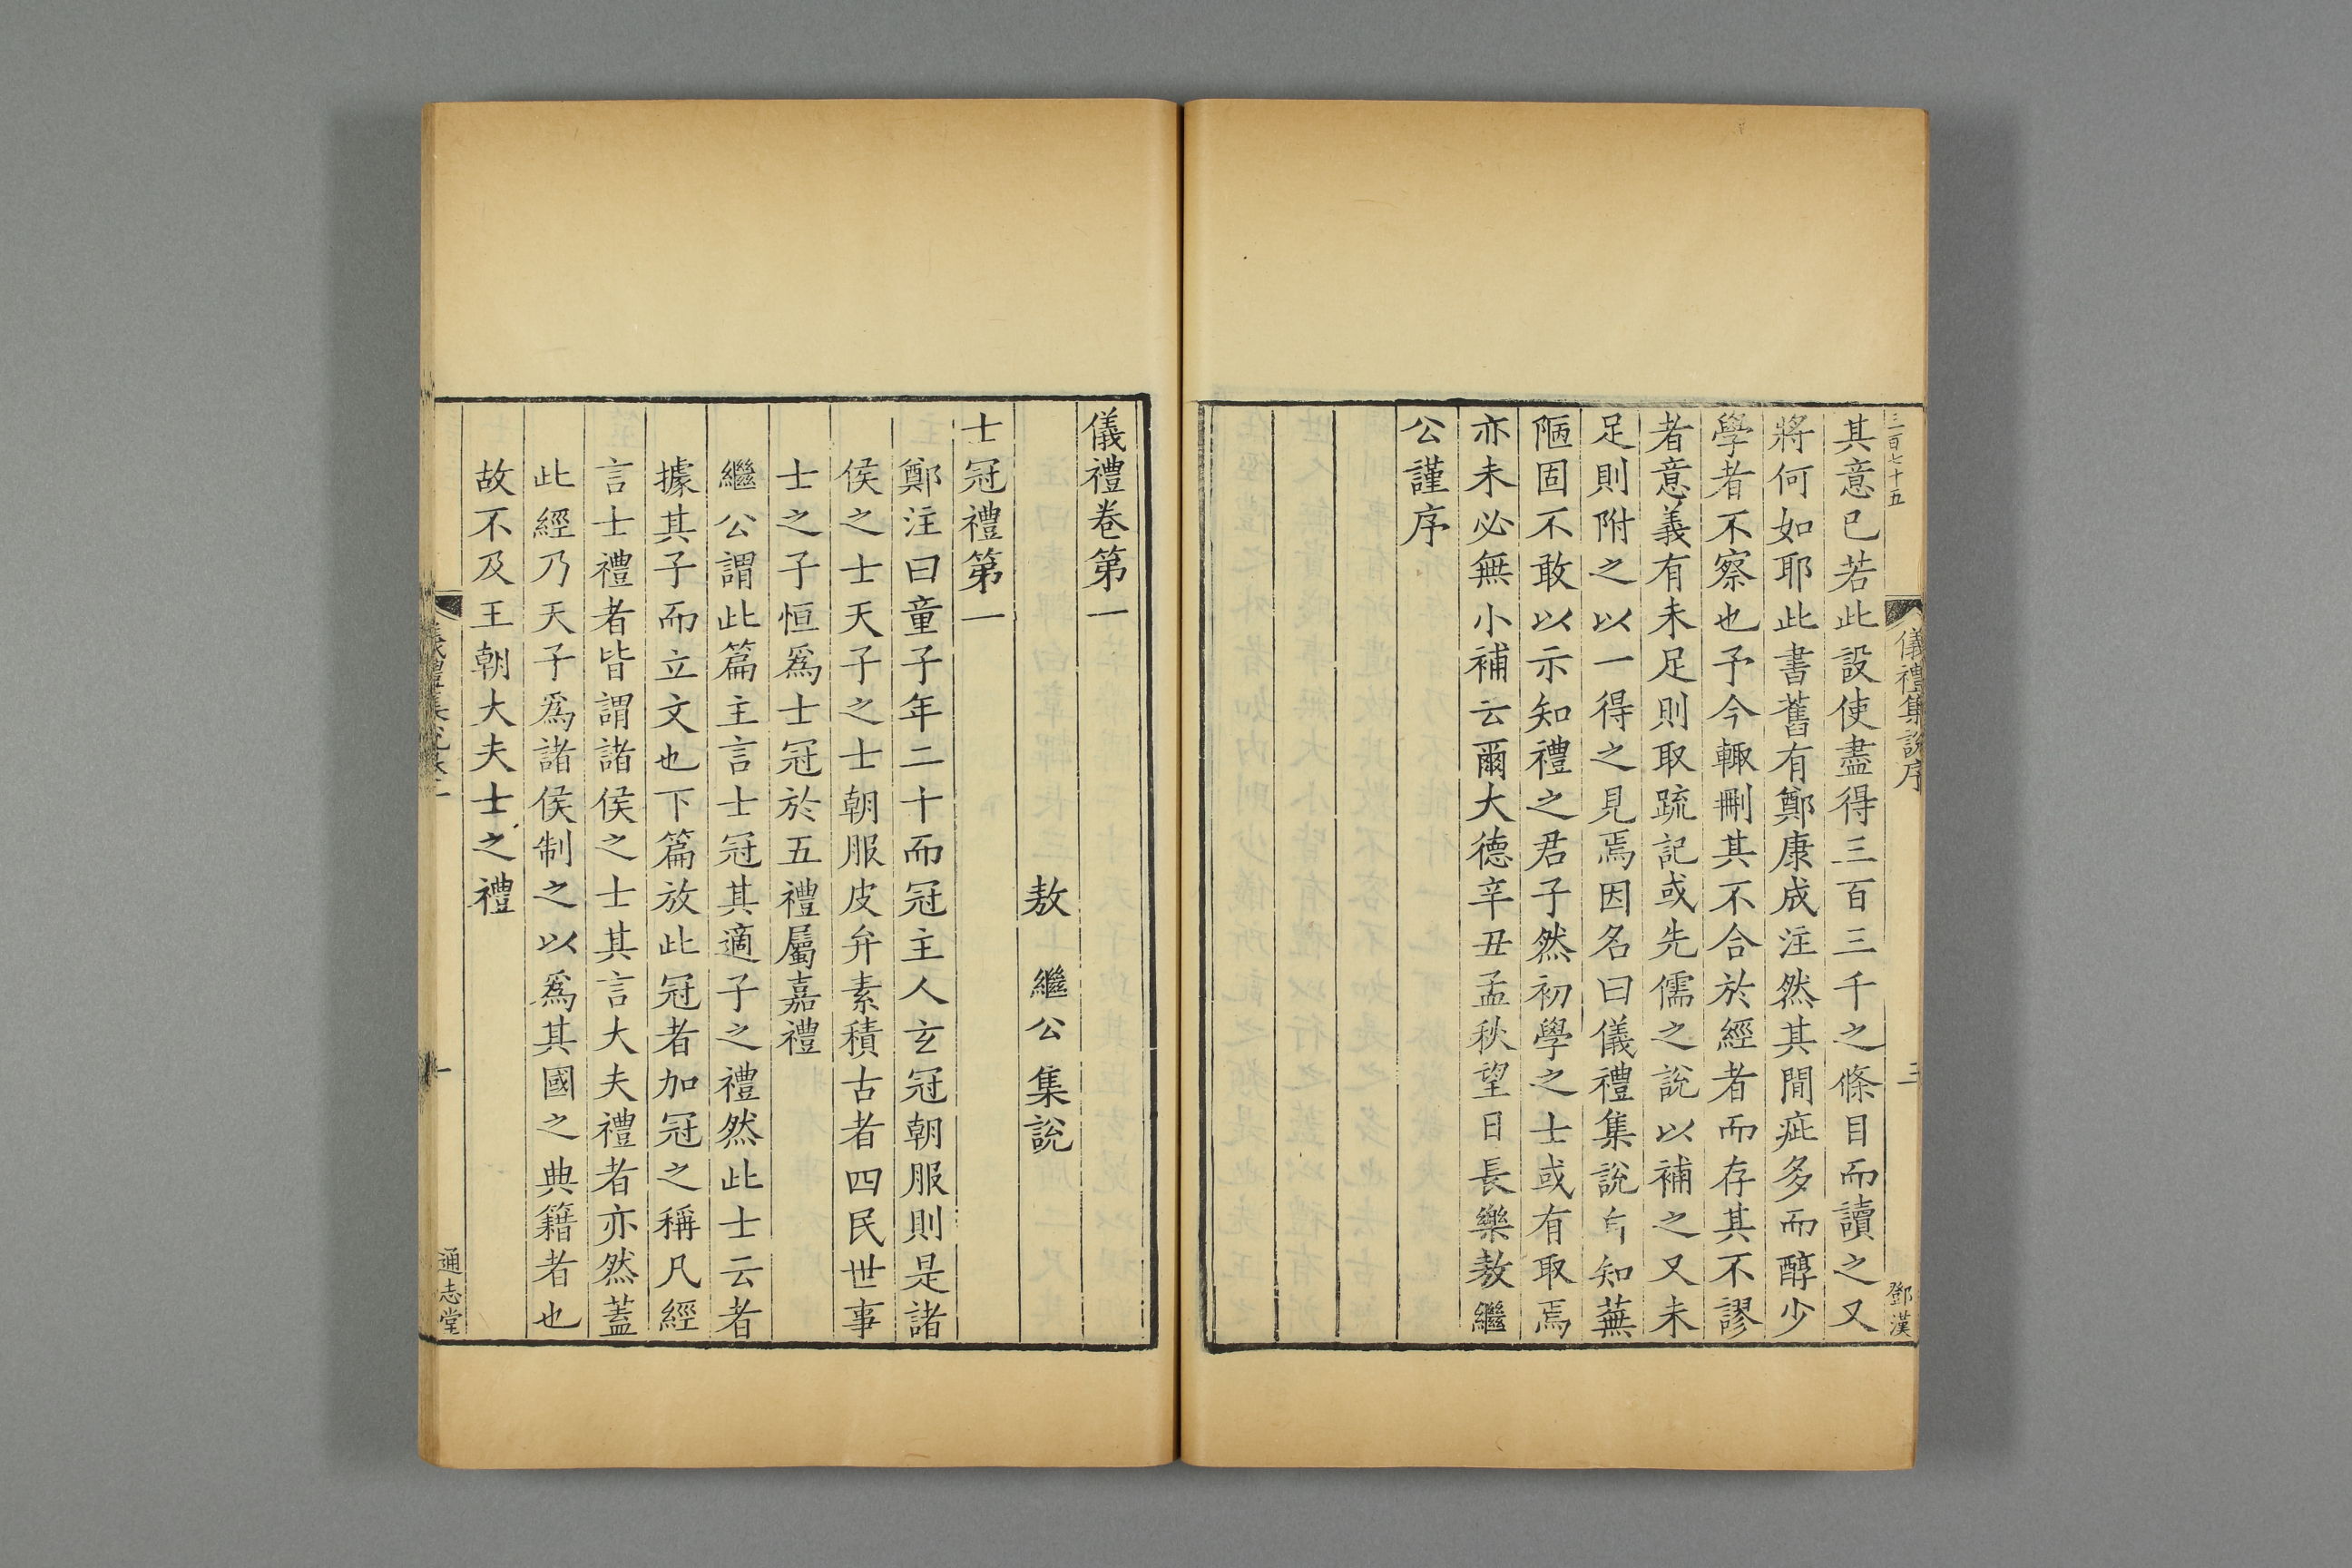 三百七十五
儀禮集說序
三
鄧漢
其意已若此設使盡得三百三千之條目而讀之又
將何如耶此書舊有鄭康成注然其間疵多而醇少
學者不察也予今輙刪其不合於經者而存其不謬
者意義有未足則取疏記或先儒之說以補之又未
足則附之以一得之見焉因名曰儀禮集說自知蕪
陋固不敢以示知禮之君子然初學之士或有取焉
亦未必無小補云爾大德辛丑孟秋望日長樂敖繼
公謹序
儀禮卷第一
敖繼公集說
士冠禮第一
鄭注曰童子年二十而冠主人玄冠朝服則是諸
侯之士天子之士朝服皮弁素積古者四民世事
士之子恒爲士冠於五禮屬嘉禮
繼公謂此篇主言士冠其適子之禮然此士云者
據其子而立文也下篇放此冠者加冠之稱凡經
言士禮者皆謂諸侯之士其言大夫禮者亦然蓋
此經乃天子爲諸侯制之以爲其國之典籍者也
故不及王朝大夫士之禮
儀禮集說卷一
一
通志堂